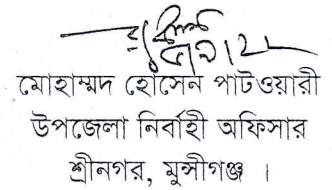 মোহাম্মদ হোসেন পাটওয়ারী
উপজেলা নির্বাহী অফিসার
শ্রীনগর, মুন্সীগঞ্জ ।